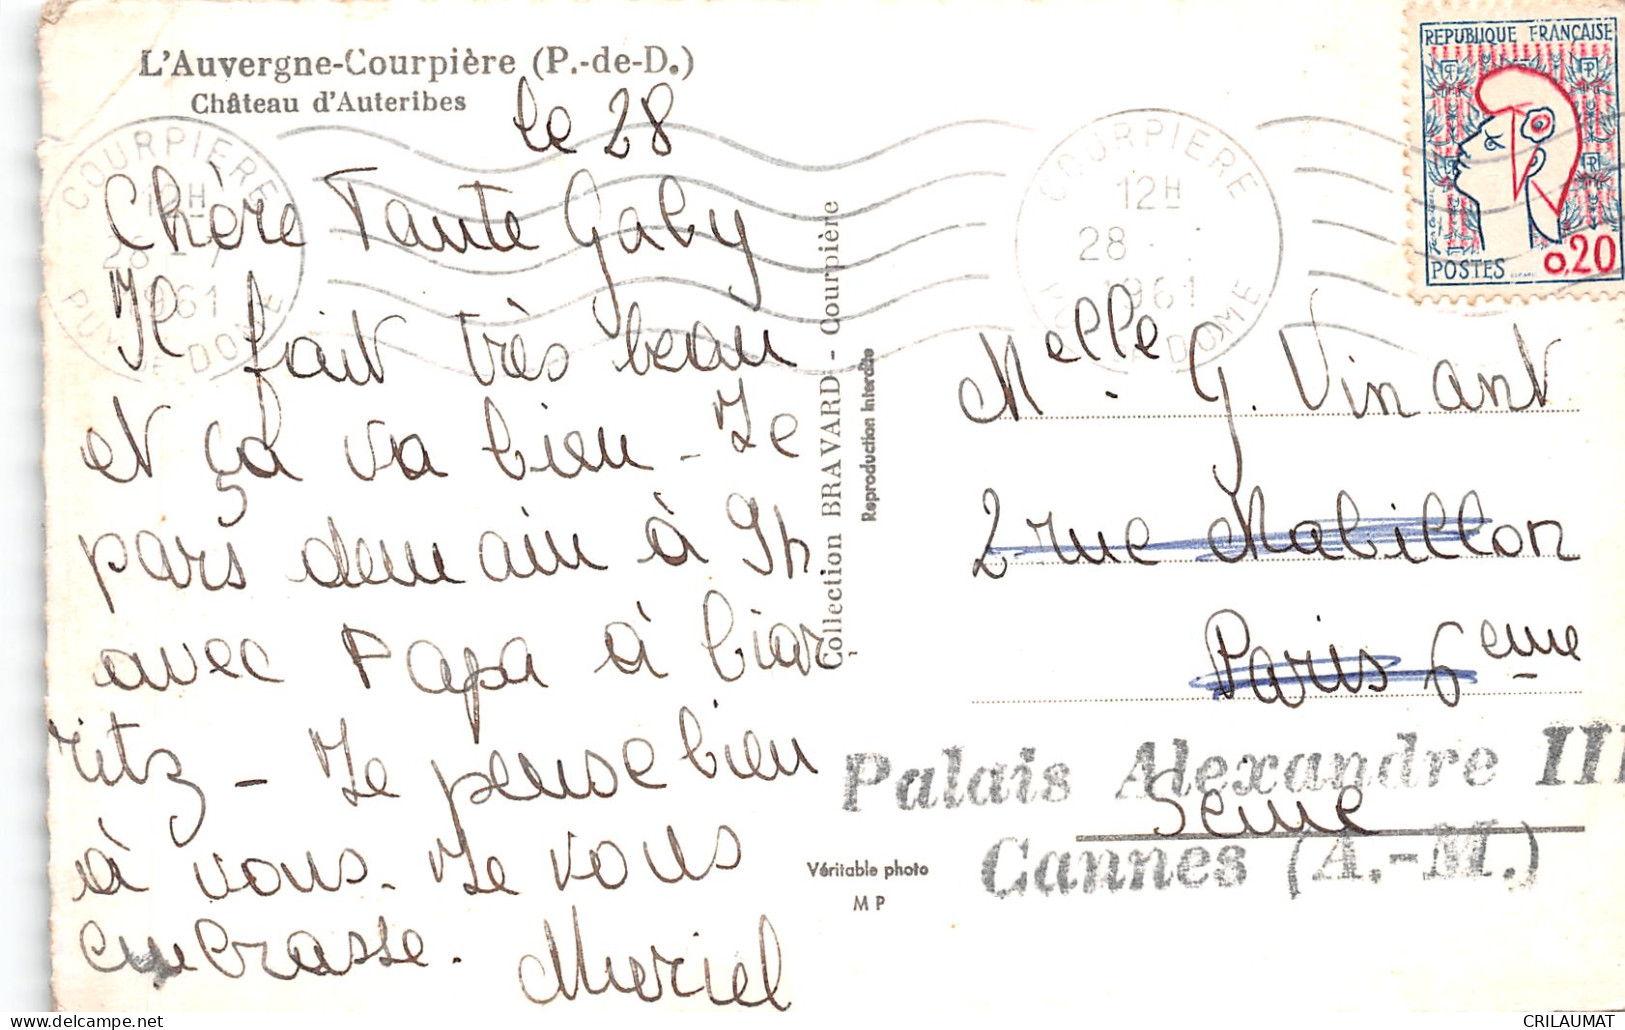 L'Auvergne-Courpière (P.-de-D.)
Château d'Auteribes
le 28
Chère Tante Gaby
Il fait très beau
et ça va bien - Je
pars demain à 9h.
avec Papa à biar
ritz - Je pense bien
à vous. Je vous
embrasse.
Muriel
COURPIERE
12H
28
1961
PUY-DE-DOME
Collection BRAVARD - Courpière
Reproduction interdite
Véritable photo
MP
COURPIERE
12H
28
1961
DOME
REPUBLIQUE FRANÇAISE
POSTES
0,20
Melle. G. Vinant
2 rue Mabillon
Paris 6eme
Seine
Palais Alexandre III
Cannes (A.-M.)
CRILAUMAT